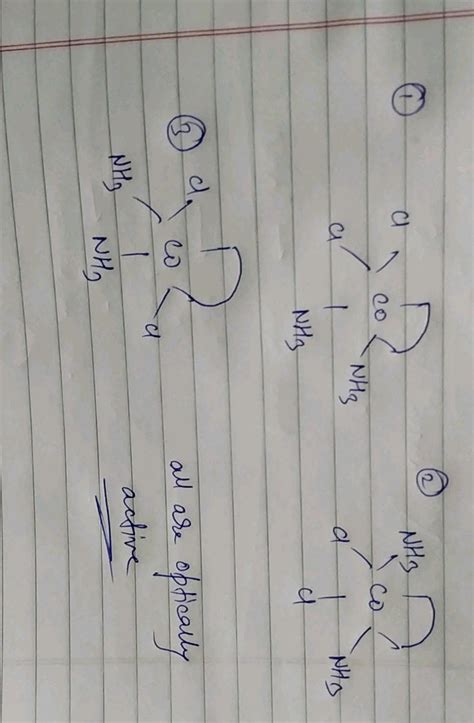 ① ②
Cl NH3
Co Co
Cl NH3 Cl NH3
NH3 Cl
③
Cl
Co
NH3 Cl
NH3
all are optically
active